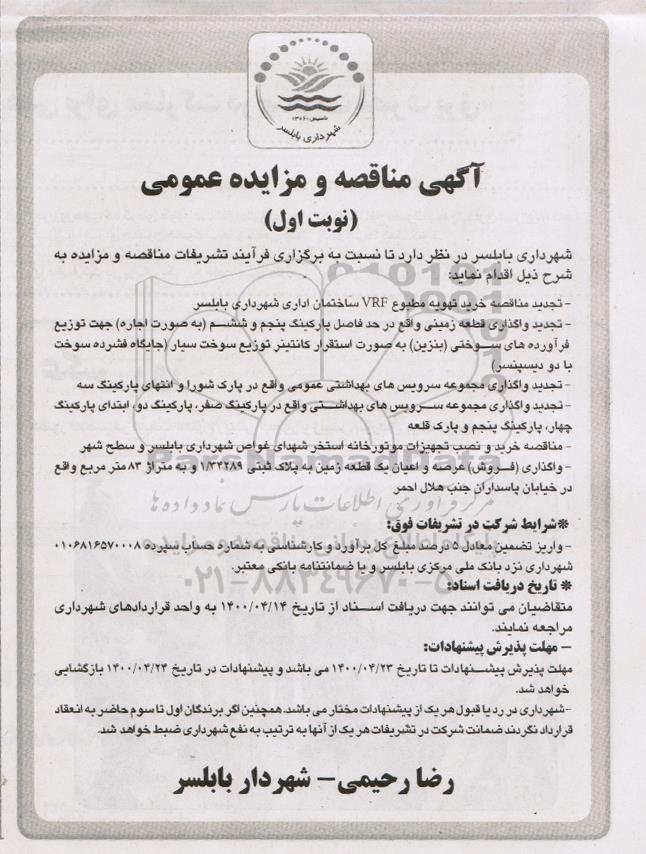 تاسیس ۱۳۰۶
شهرداری بابلسر
آگهی مناقصه و مزایده عمومی
(نوبت اول)
شهرداری بابلسر در نظر دارد تا نسبت به برگزاری فرآیند تشریفات مناقصه و مزایده به
شرح ذیل اقدام نماید:
- تجدید مناقصه خرید تهویه مطبوع VRF ساختمان اداری شهرداری بابلسر
- تجدید واگذاری قطعه زمینی واقع در حد فاصل پارکینگ پنجم و ششم (به صورت اجاره) جهت توزیع
فرآورده های سوختی (بنزین) به صورت استقرار کانتینر توزیع سوخت سیار (جایگاه فشرده سوخت
با دو دیسپنسر)
- تجدید واگذاری مجموعه سرویس های بهداشتی عمومی واقع در پارک شورا و انتهای پارکینگ سه
- تجدید واگذاری مجموعه سرویس های بهداشتی واقع در پارکینگ صفر، پارکینگ دو، ابتدای پارکینگ
چهار، پارکینگ پنجم و پارک قلعه
- مناقصه خرید و نصب تجهیزات موتورخانه استخر شهدای غواص شهرداری بابلسر و سطح شهر
- واگذاری (فروش) عرصه و اعیان یک قطعه زمین به پلاک ثبتی ۱/۳۴۲۸۹ و به متراژ ۸۳ متر مربع واقع
در خیابان پاسداران جنب هلال احمر
*شرایط شرکت در تشریفات فوق:
- واریز تضمین معادل ۵ درصد مبلغ کل برآورد و کارشناسی به شماره حساب سپرده ۰۱۰۶۸۱۶۵۷۰۰۰۸
شهرداری نزد بانک ملی مرکزی بابلسر و یا ضمانتنامه بانکی معتبر.
* تاریخ دریافت اسناد:
متقاضیان می توانند جهت دریافت اسناد از تاریخ ۱۴۰۰/۰۴/۱۴ به واحد قراردادهای شهرداری
مراجعه نمایند.
- مهلت پذیرش پیشنهادات:
مهلت پذیرش پیشنهادات تا تاریخ ۱۴۰۰/۰۴/۲۳ می باشد و پیشنهادات در تاریخ ۱۴۰۰/۰۴/۲۴ بازگشایی
خواهد شد.
-شهرداری در رد یا قبول هر یک از پیشنهادات مختار می باشد. همچنین اگر برندگان اول تا سوم حاضر به انعقاد
قرارداد نگردند ضمانت شرکت در تشریفات هر یک از آنها به ترتیب به نفع شهرداری ضبط خواهد شد.
رضا رحیمی- شهردار بابلسر
ParsNamadData
مرکز فرآوری اطلاعات پارس نماد داده ها
۰۲۱-۸۸۳۴۹۶۷۰-۵